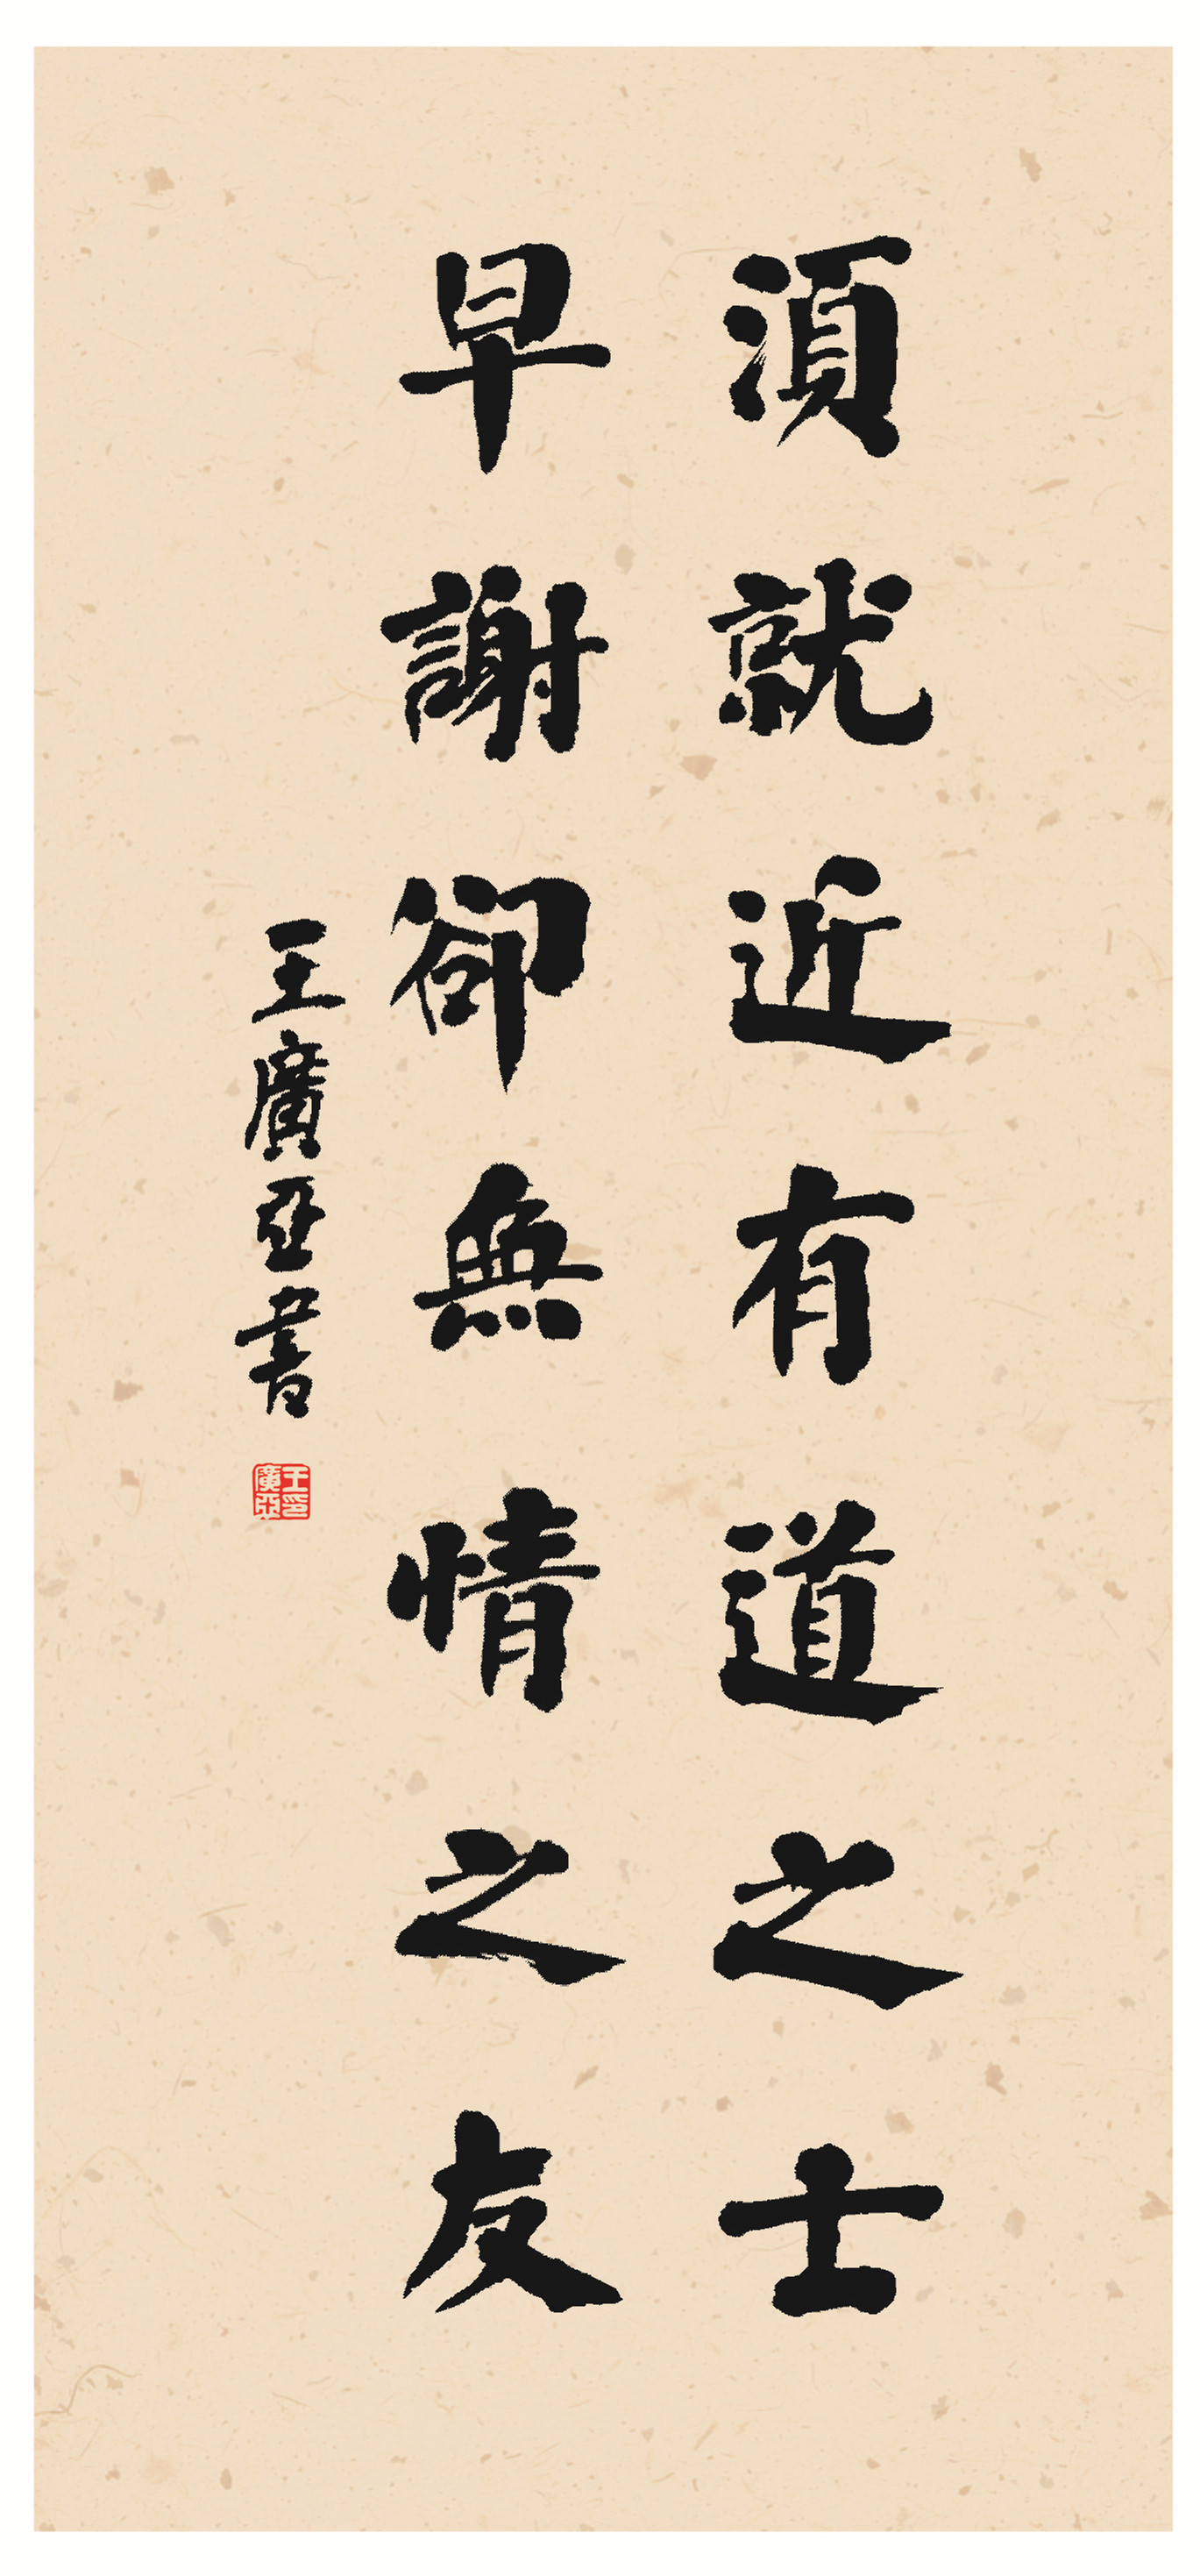 須就近有道之士
早謝卻無情之友
王廣亞書
王印廣亞